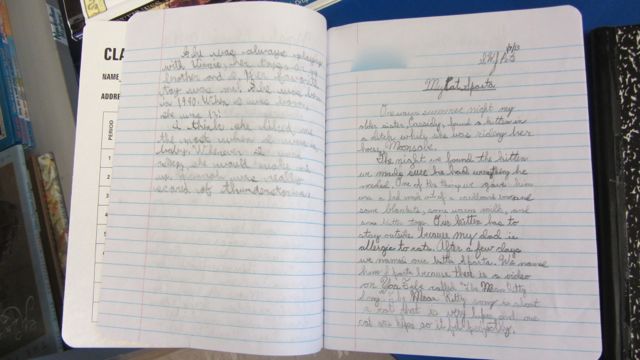 CLA
NAME
ADDRE
PERIOD
1
2
3
4
She was always playing
with Winnie, her toys,
brother and I. Her favorite
toy was
in 1990. When I was born,
she was
I think she liked me
the most when I was a
baby. Whenever I
she would
up. was really
scared of thunderstorms.
My Cat Sparta
One warm summer night my
older sister, Cassidy found a kitten in
a ditch while she was riding her
horse, Moonsave.
The night we found the kitten
we made sure he had everything he
needed. One of the things we gave him
was a bed made out of a cardboard box and
some blankets, some warm milk, and
some kitten toys. Our kitten has to
stay outside because my dad is
allergic to cats. After a few days
we named our kitten Sparta. We named
him Sparta because there is a video
on YouTube called "The Mean Kitty
Song". The Mean Kitty song is about
a cat that is very hyper and our
cat was hyper so it fit perfectly.